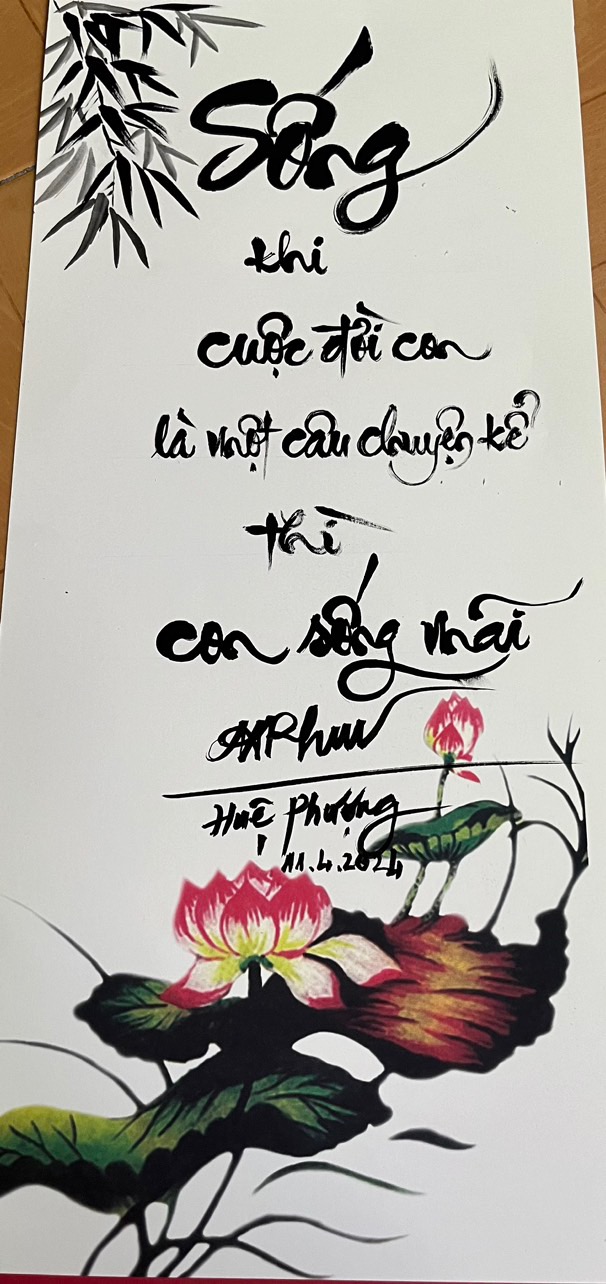 Sống
khi
cuộc đời con
là một câu chuyện kể
thì
con sống mãi
Huệ Phượng
11.4.2024